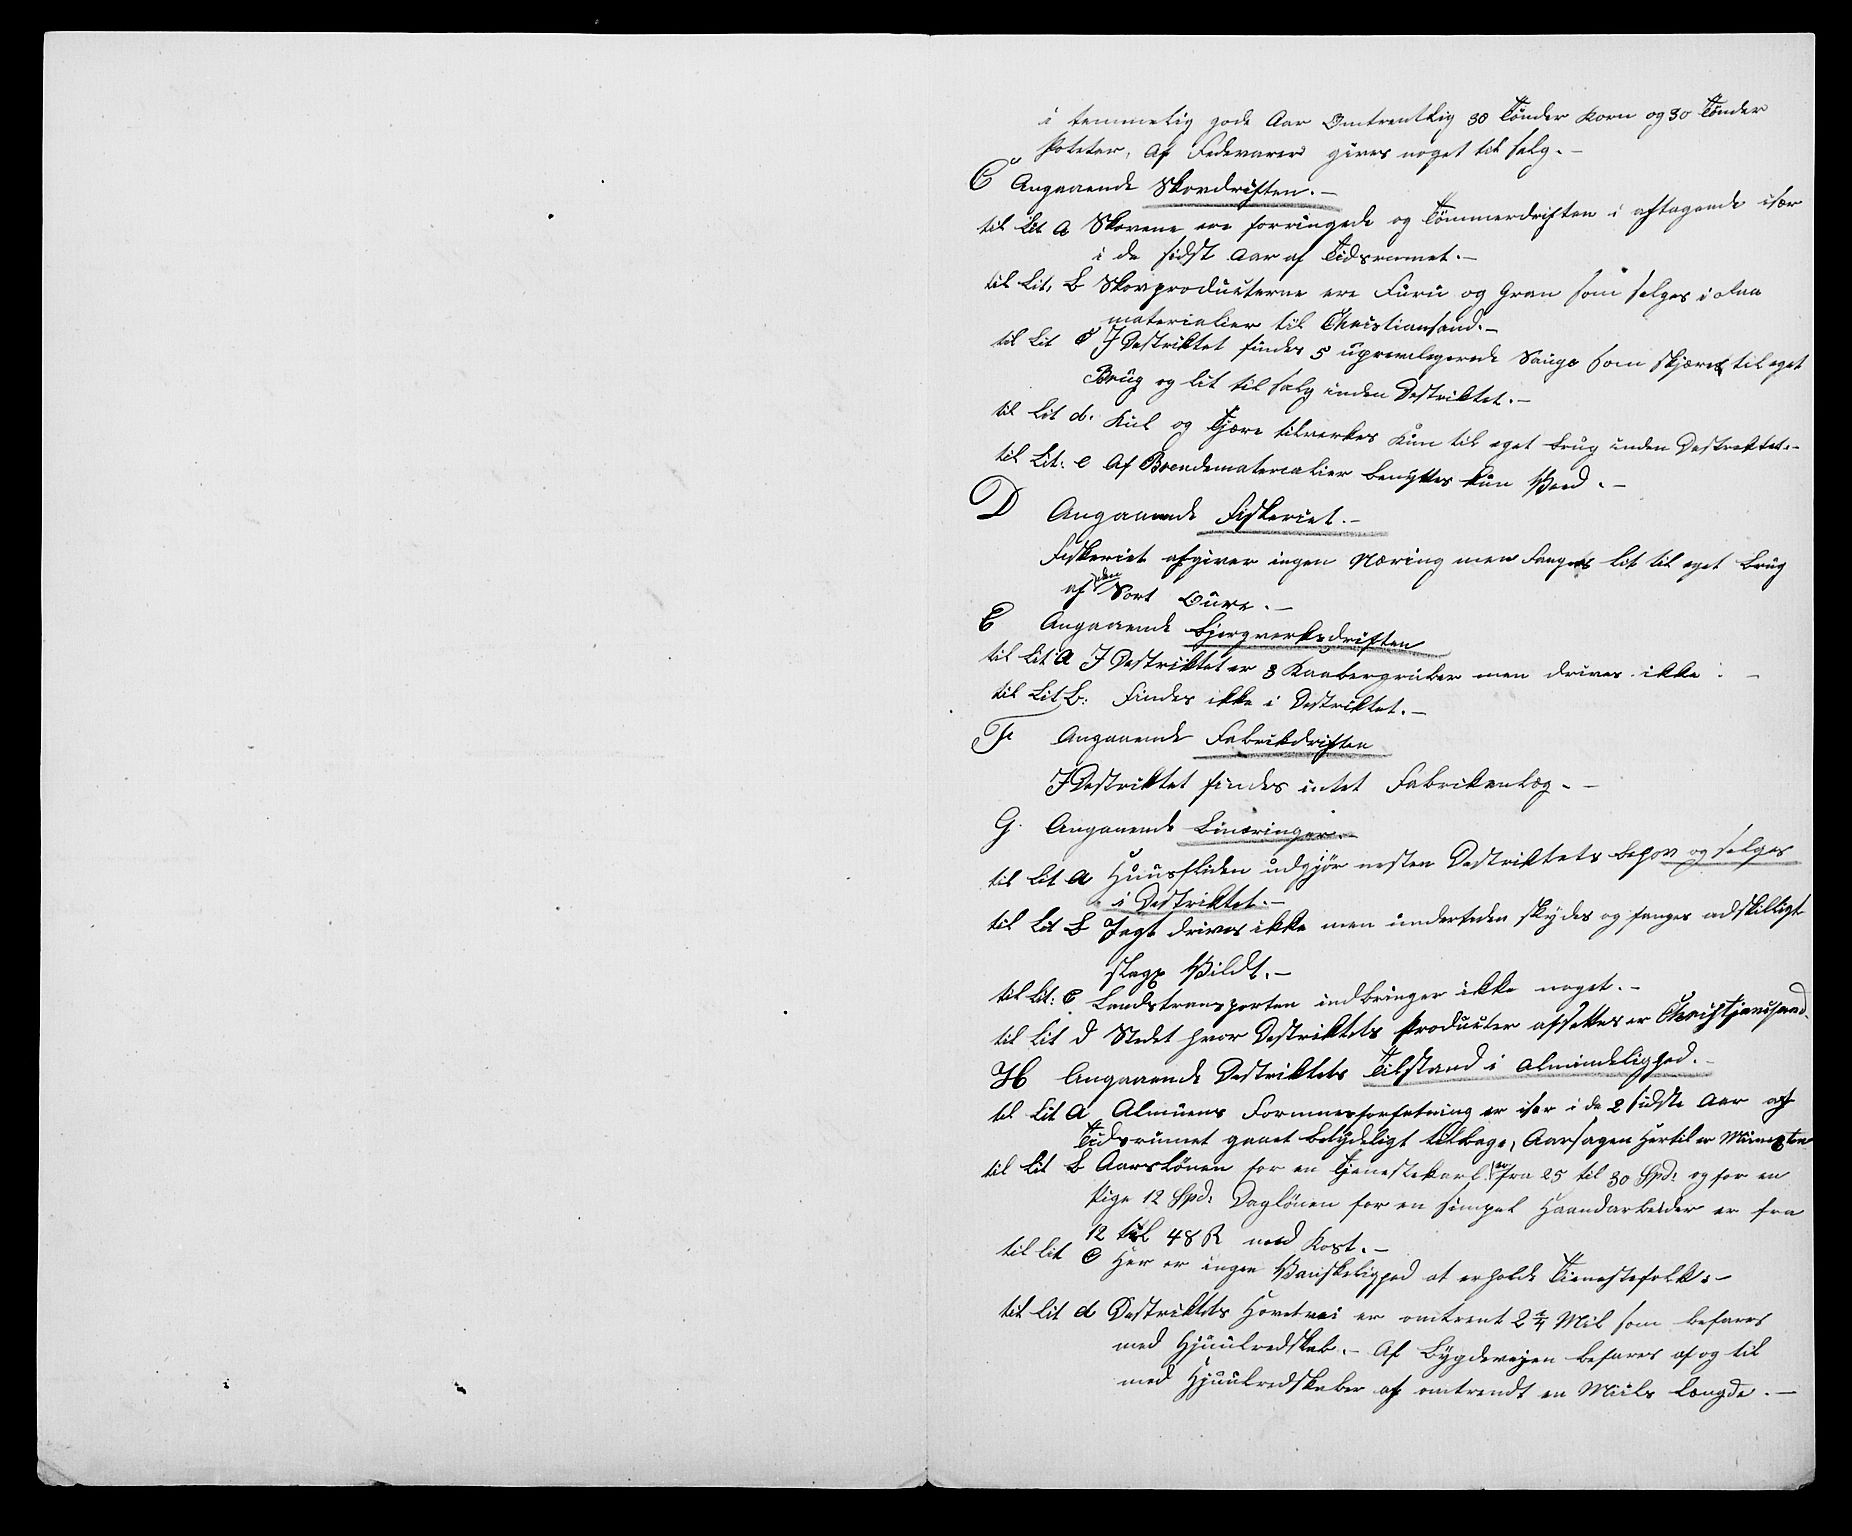 i temmelig gode Aar Omtrentlig 30 Tönder Korn og 30 Tönder
Poteter, Af Fedevarer gives noget til salg.-
C Angaaende Skovdriften.-
til Lit A Skovene ere forringede og Tömmerdriften i aftagende især
i de sidst Aar af Tidsrumet.-
til Lit. B Skovproducterne ere Furu og Gran som selges i
materialier til Christiansand.-
til Lit C I Destriktet findes 5 uprevelegerede Sauge som skjærer til eget
Brug og lit til salg inden Destriktet.-
til Lit d. Kul og Tjære tilverkes kun til eget brug inden Destriktet.-
til Lit. e Af Brendematerealier benyttes kun Veed.-
D Angaaende Fiskeriet.-
Feskeriet afgiver ingen Næring men fanges lit til eget brug
af den Sort Öure.-
E Angaaende Bjergverksdriften
til Lit A I Destriktet er 3 Kaabergruber men drives ikke.-
til Lit B. Findes ikke i Destriktet.-
F Angaaende Fabrikdriften
I Destriktet findes intet Fabrikanlæg.-
G. Angaaende Binæringer.-
til Lit A Huusfliden udgjör nesten Destriktets behov og selges
i Destriktet.-
til Lit B Jagt drives ikke men underteden skydes og fanges adskilligt
slags Vildt.-
til Lit. C Landstransporten indbringer ikke noget.-
til Lit d Stedet hvor Destriktets Producter afsettes er Christjansand.
H Angaaende Destriktets Tilstand i Almindelighed.-
til Lit A Almuens Formuesforfatning er især i de 2 sidste Aar af
Tidsrumet gaaet betydeligt tilbage, Aarsagen Hertil er
til Lit B Aarslönen for en Tjenestekarl er fra 25 til 30 Spd: og for en
Pige 12 Spd: Daglönen for en simpel Haandarbeider er fra
12 til 48 ß med Kost.-
til lit C Her er ingen Vanskelighed at erholde Tienestefolk.-
til lit d Destriktets Hovetvei er omtrent 2 1/4 Mil som befares
med Hjuulredskab.- Af Bygdeveien befares af og til
med Hjuulredskaber af omtrendt en Miils Længde.-